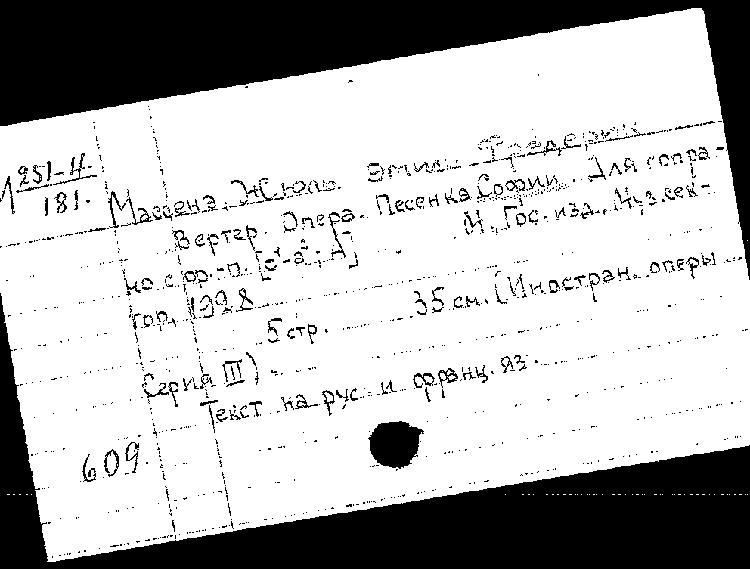 М 251-Н.
181.
Массенэ, Жюль Эмиль Фредерик
Вертер. Опера. Песенка Софии. Для сопра-
но с фр.-п. [c¹-a²; A] М., Гос. изд., Муз. сек-
тор, 1928
5 стр. 35 см. (Иностран. оперы
Серия III)
Текст на рус. и франц. яз.
609